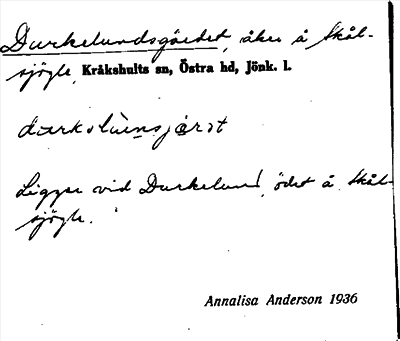 Durkelundsgärdet, åker å Skål-
sjögle, Kråkshults sn, Östra hd, Jönk. l.
Ligger vid Durkelund, ödet å Skål-
sjögle.
Annalisa Anderson 1936